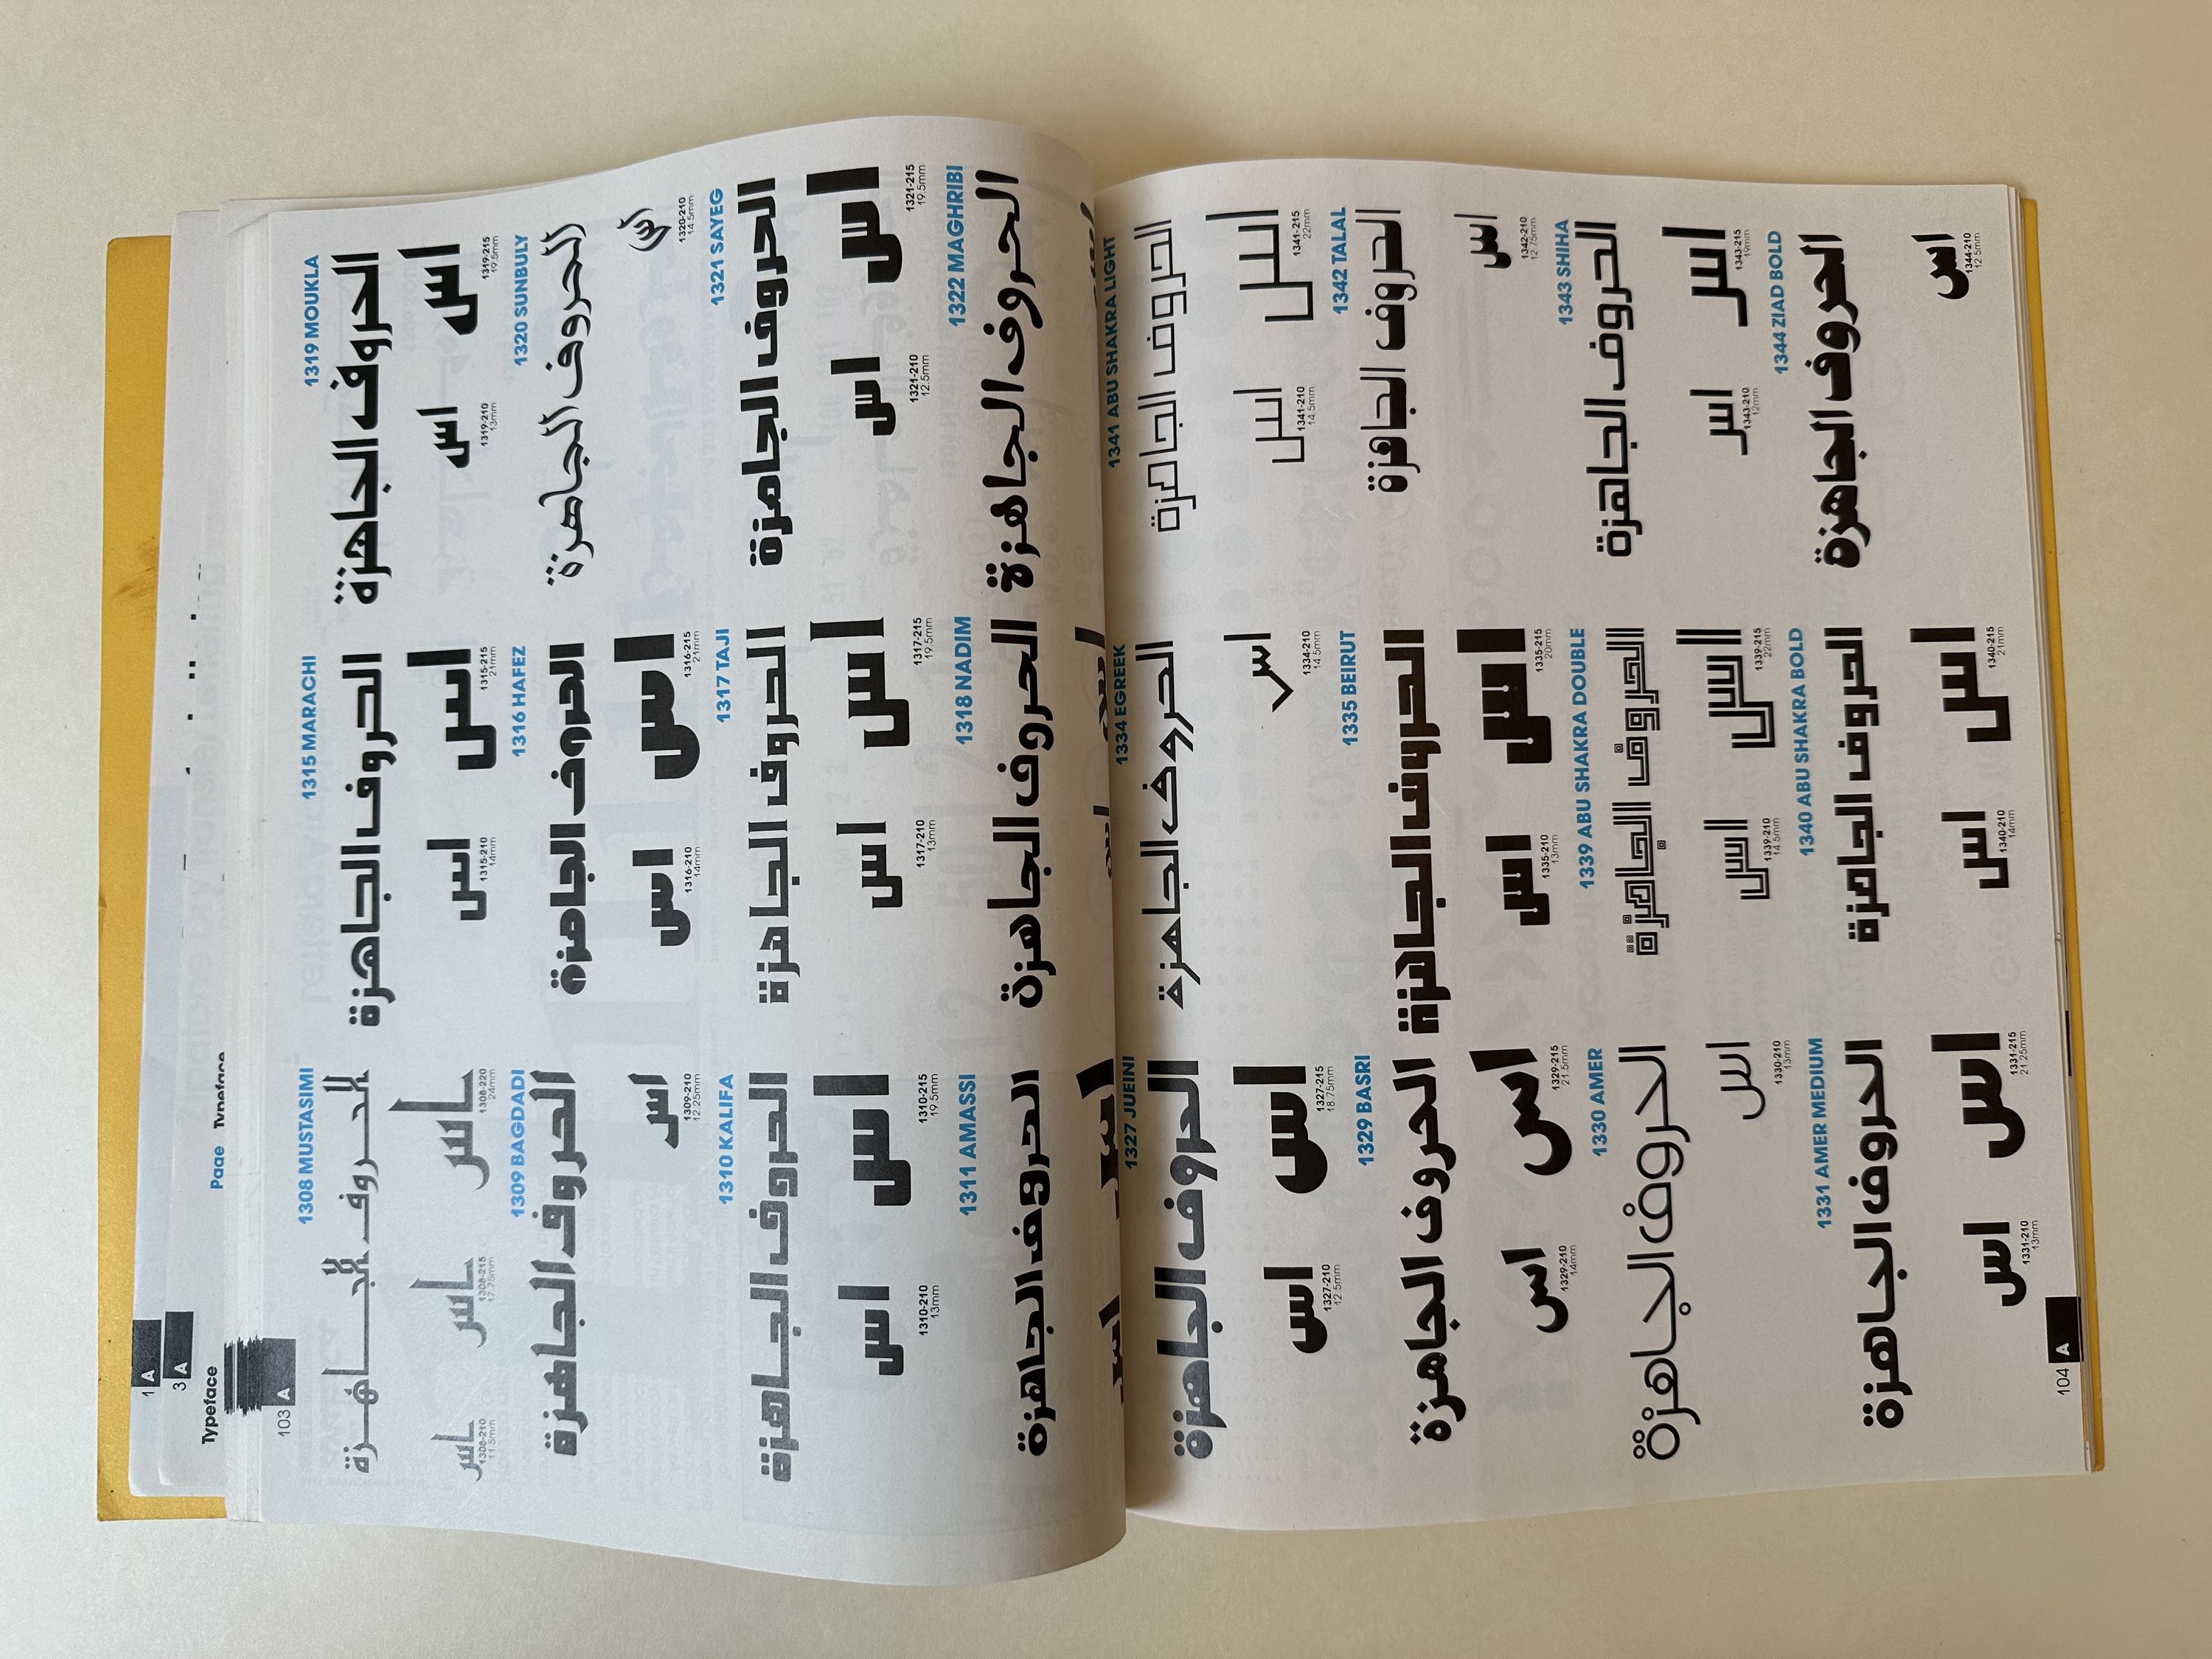 1 A
3 A
Typeface
Page Typeface
103 A
1308 MUSTASIMI
الحروف الجاهزة
اس اس اس
1308-210 1308-215 1308-220
11.5mm 17.75mm 24mm
1309 BAGDADI
الحروف الجاهزة
اس
1309-210
12.25mm
1310 KALIFA
الحروف الجاهزة
اس اس
1310-210 1310-215
13mm 19.5mm
1311 AMASSI
الحروف الجاهزة
اس اس
1315 MARACHI
الحروف الجاهزة
اس اس
1315-210 1315-215
14mm 21mm
1316 HAFEZ
الحروف الجاهزة
اس اس
1316-210 1316-215
14mm 21mm
1317 TAJI
الحروف الجاهزة
اس اس
1317-210 1317-215
13mm 19.5mm
1318 NADIM
الحروف الجاهزة
1319 MOUKLA
الحروف الجاهزة
اس اس
1319-210 1319-215
13mm 19.5mm
1320 SUNBULY
الحروف الجاهزة
اس
1320-210
14.5mm
1321 SAYEG
الحروف الجاهزة
اس اس
1321-210 1321-215
12.5mm 19.5mm
1322 MAGHRIBI
الحروف الجاهزة
1327 JUEINI
الحروف الجاهزة
اس اس
1327-210 1327-215
12.5mm 18.75mm
1329 BASRI
الحروف الجاهزة
اس اس
1329-210 1329-215
14mm 21.5mm
1330 AMER
الحروف الجاهزة
اس
1330-210
13mm
1331 AMER MEDIUM
الحروف الجاهزة
اس اس
1331-210 1331-215
13mm 21.25mm
1334 EGREEK
الحروف الجاهزة
اس
1334-210
14.5mm
1335 BEIRUT
الحروف الجاهزة
اس اس
1335-210 1335-215
13mm 20mm
1339 ABU SHAKRA DOUBLE
الحروف الجاهزة
اس اس
1339-210 1339-215
14.5mm 22mm
1340 ABU SHAKRA BOLD
الحروف الجاهزة
اس اس
1340-210 1340-215
14mm 21mm
1341 ABU SHAKRA LIGHT
الحروف الجاهزة
اس اس
1341-210 1341-215
14.5mm 22mm
1342 TALAL
الحروف الجاهزة
اس
1342-210
12.75mm
1343 SHIHA
الحروف الجاهزة
اس اس
1343-210 1343-215
12mm 19mm
1344 ZIAD BOLD
الحروف الجاهزة
اس
1344-210
12.5mm
104 A